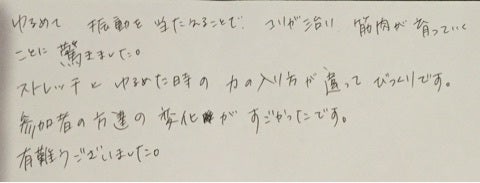 ゆるめて 振動を当たえることで コリが治り 筋肉が育っていく
ことに驚きました。
ストレッチと ゆるめた時の力の入り方が違ってびっくりです。
参加者の方達の変化がすごかったです。
有難うございました。